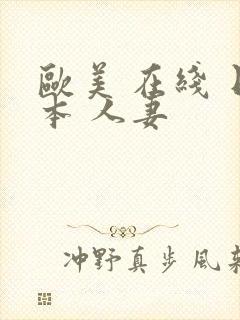 歐美在綫
本人妻
冲野真步風